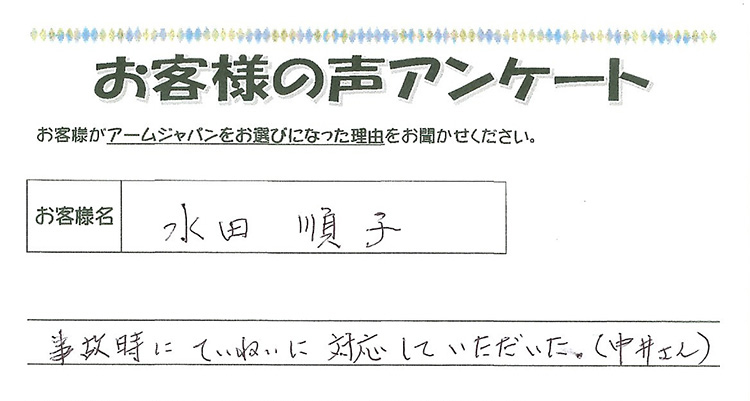 お客様の声アンケート
お客様がアームジャパンをお選びになった理由をお聞かせください。
お客様名
水田 順子
事故時にていねいに対応していただいた。(中井さん)